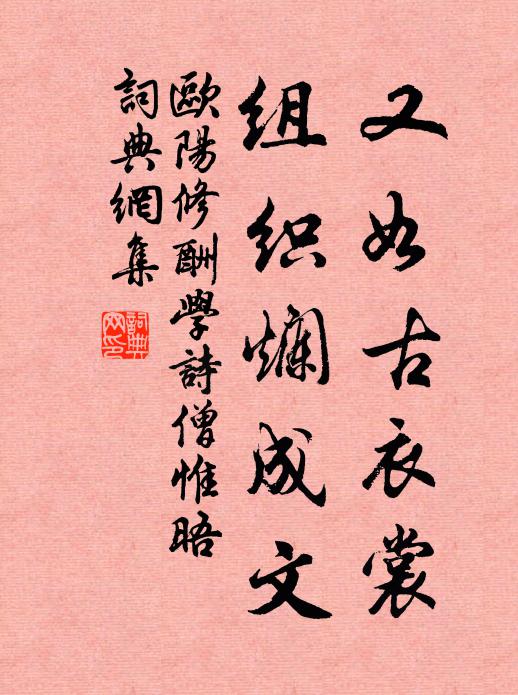 又如古衣裳
组织爛成文
歐陽修酬學詩僧惟晤
詞典網集
詞典網印